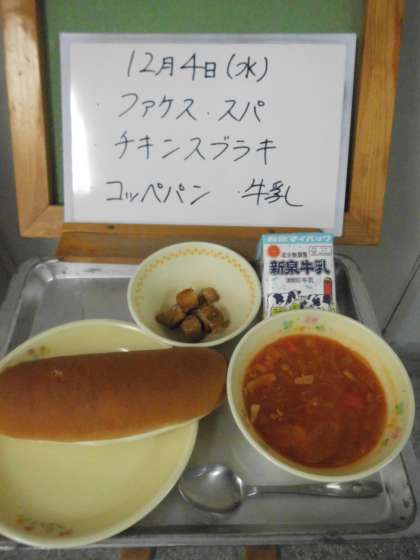 12月4日(水)
・ファケス・スパ
・チキンスブラキ
コッペパン ・牛乳
マイパック
新泉牛乳